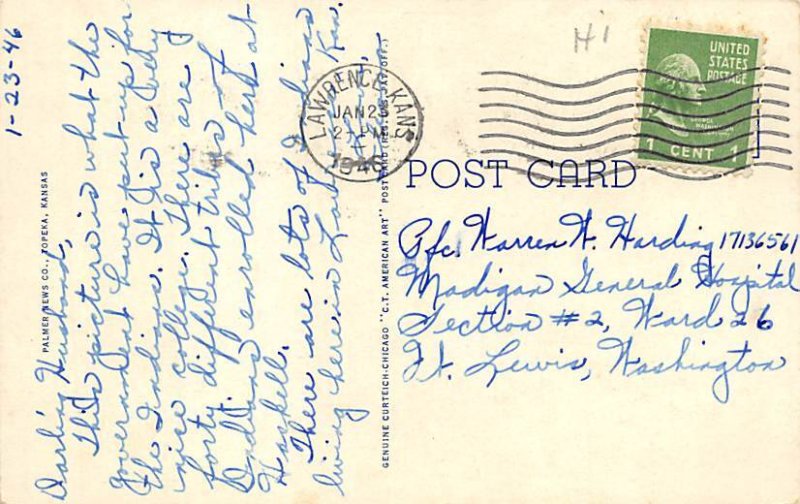 1-23-46
Darling Husband,
This picture is what the
government have put up for
the Indians. It is a very
nice college. There are
forty different tribes of
Indians enrolled here at
Haskell.
There are lots of Indians
living here in Kan.
PALMER NEWS CO., TOPEKA, KANSAS
GENUINE CURTEICH-CHICAGO "C.T. AMERICAN ART" POST CARD (REG. U.S. PAT. OFF.)
LAWRENCE, KANS
JAN 23
2 - PM
1946
H1
UNITED
STATES
POSTAGE
GEORGE
WASHINGTON
1 CENT 1
POST CARD
Pfc. Warren W. Harding 17136561
Madigan General Hospital
Section #2, Ward 26
Ft. Lewis, Washington